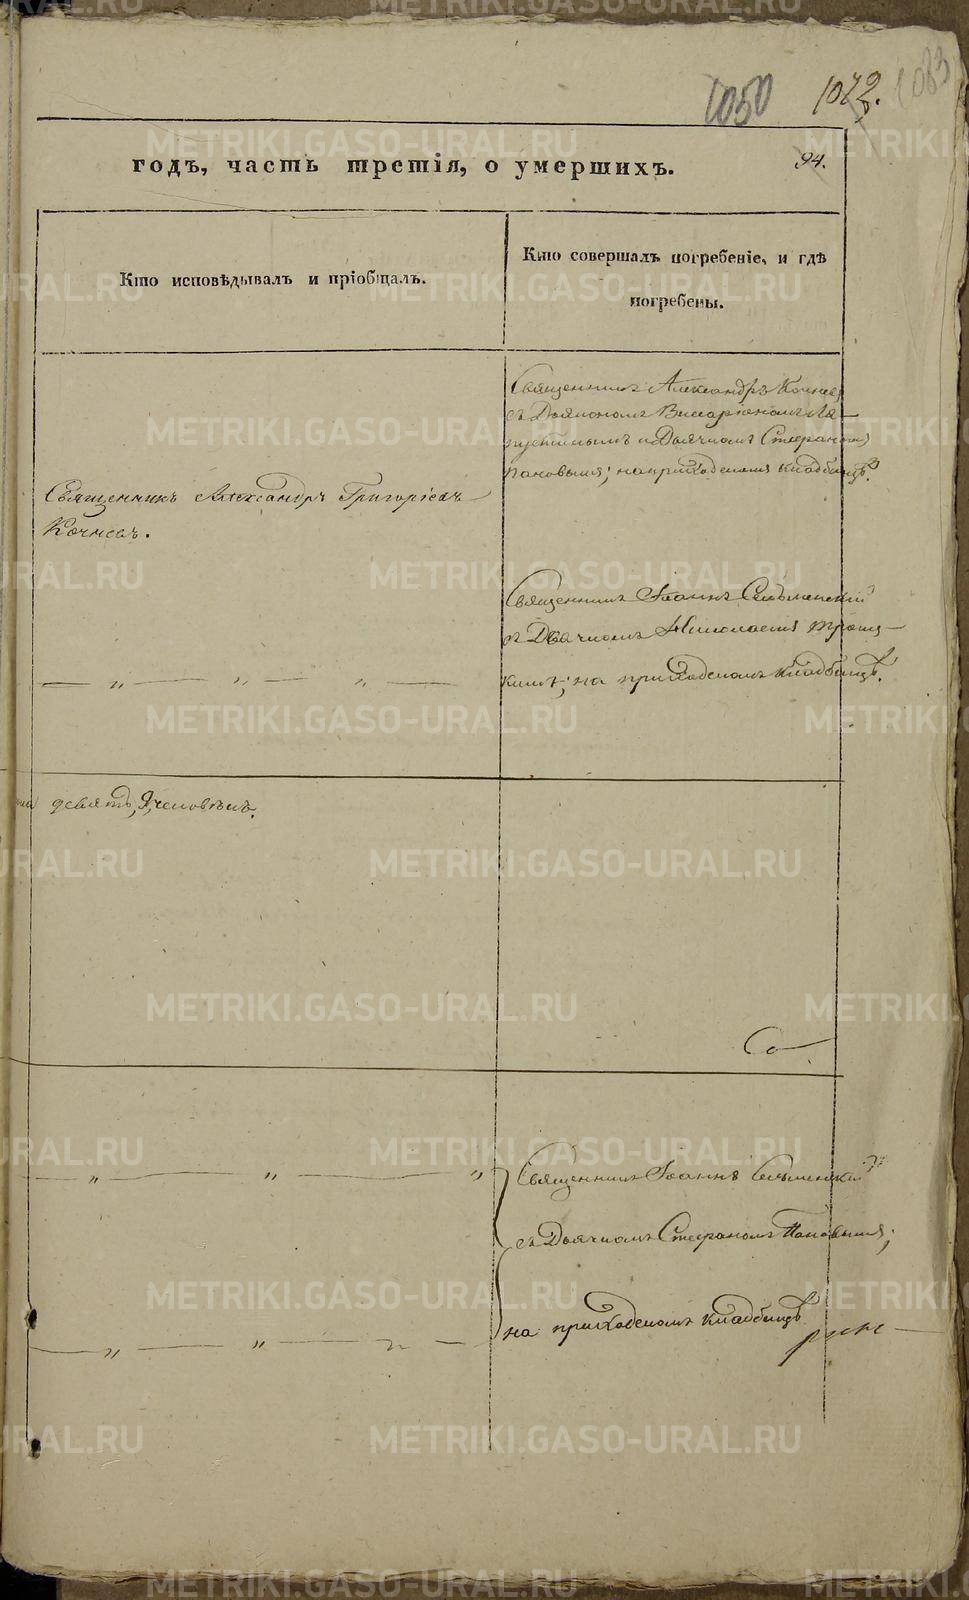 1050 1072. 1083
годъ, часть третія, о умершихъ. 94.
Кто исповѣдывалъ и пріобщалъ.
Кто совершалъ погребеніе, и гдѣ
погребены.
Священникъ Александръ Григоріевъ
Кочневъ.
Священникъ Александръ Кочневъ
съ Дьякономъ Виссаріономъ Ла-
пустинымъ и Дьячкомъ Стефаномъ
Пановымъ; на приходскомъ кладбищѣ.
— „ — „ — „ —
Священникъ Іоаннъ
съ Дьячкомъ Николаемъ Троиц-
кимъ; на приходскомъ кладбищѣ.
девять, 9, человѣкъ.
Со-
— „ — „ — „
Священникъ Іоаннъ
съ Дьячкомъ Стефаномъ Пановымъ;
— „ — „ — „ —
на приходскомъ кладбищѣ
METRIKI.GASO-URAL.RU